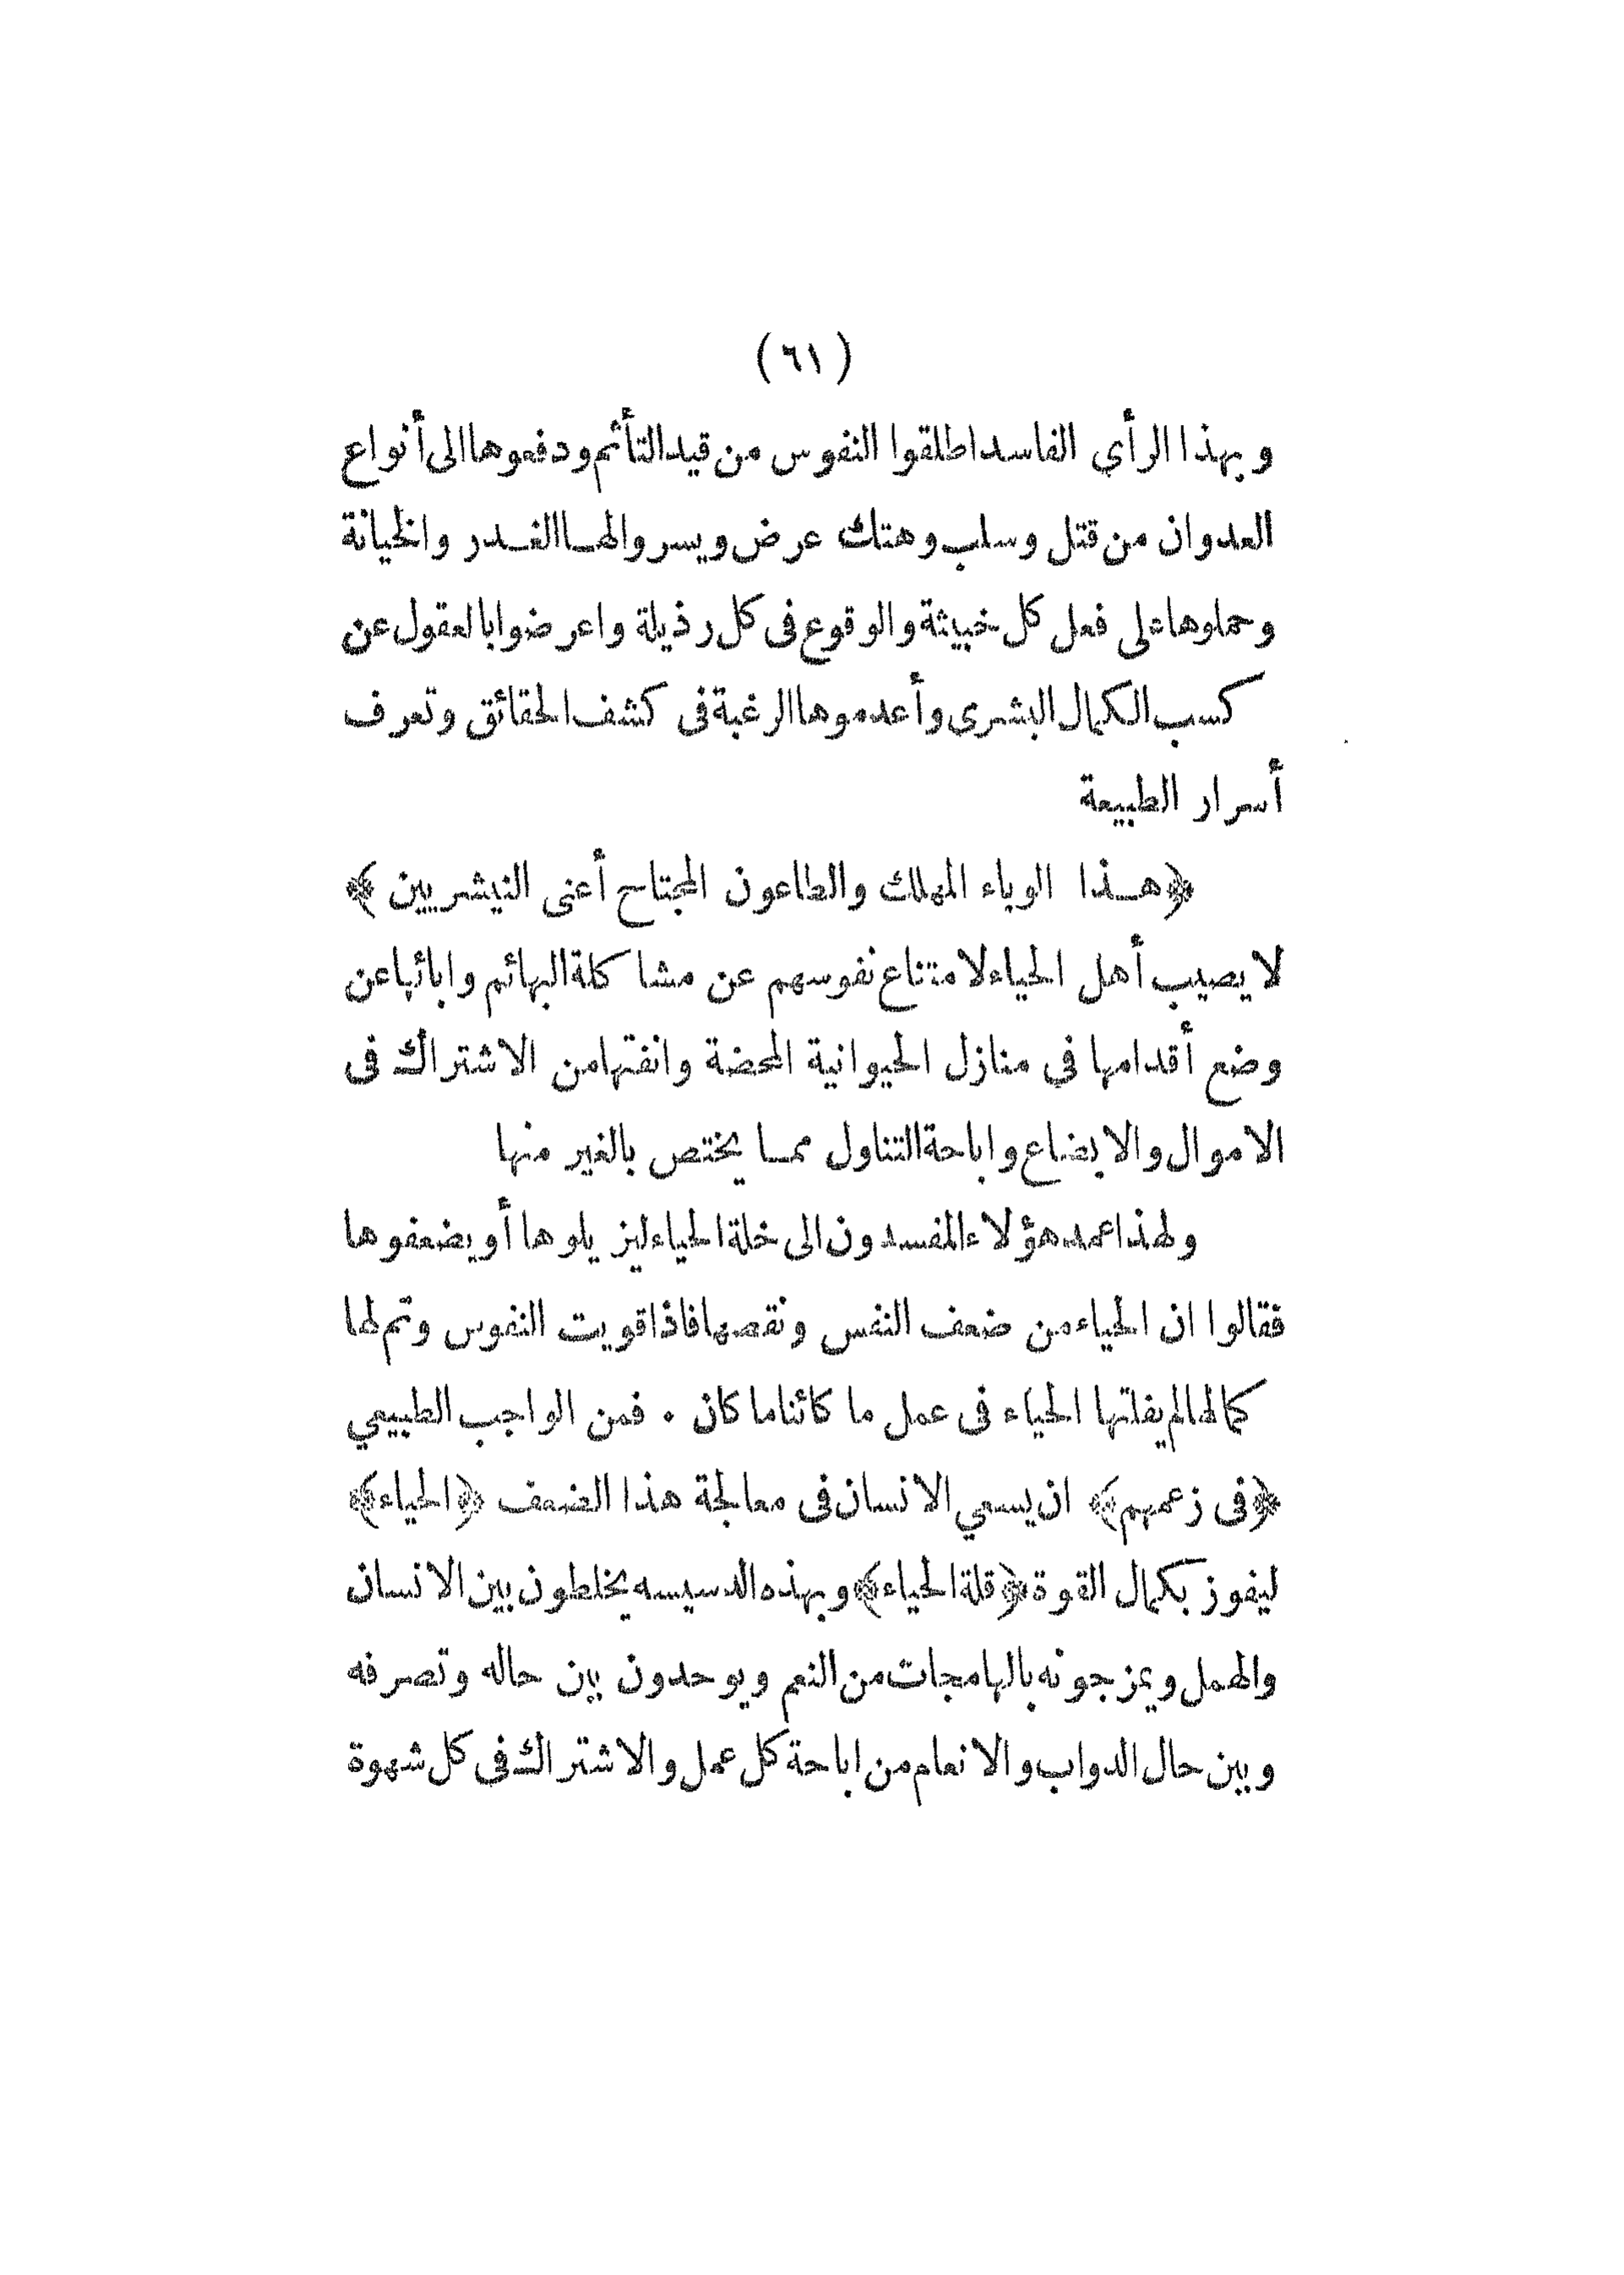 ( ٦١ )
وبهذا الرأي الفاسد اطلقوا النفوس من قيد التأثم ودفعوها الى أنواع
العدوان من قتل وسلب وهتك عرض ويسروا لهـا الغـدر والخيانة
وحملوها على فعل كل خبيثة والوقوع فى كل رذيلة واعرضوا بالعقول عن
كسب الكمال البشرى وأعدموها الرغبة فى كشف الحقائق وتعرف
أسرار الطبيعة
﴿هـذا الوباء المهلك والطاعون المجتاح أعنى النيشريين ﴾
لا يصيب أهل الحياء لامتناع نفوسهم عن مشاكلة البهائم وابائها عن
وضع أقدامها في منازل الحيوانية المحضة وانفتها من الاشتراك فى
الاموال والابضاع واباحة التناول ممـا يختص بالغير منها
ولهذا عمد هؤلاء المفسدون الى خلة الحياء ليزيلوها أو يضعفوها
فقالوا ان الحياء من ضعف النفس ونقصها فاذا قويت النفوس وتم لها
كمالها لم يغلبها الحياء فى عمل ما كائنا ما كان . فمن الواجب الطبيعي
﴿فى زعمهم﴾ ان يسعي الانسان فى معالجة هذا الضعف ﴿الحياء﴾
ليفوز بكمال القوة ﴿قلة الحياء﴾ وبهذه الدسيسه يخلطون بين الانسان
والهمل ويمزجونه بالهامجات من النعم ويوحدون بين حاله وتصرفه
وبين حال الدواب والانعام من اباحة كل عمل والاشتراك فى كل شهوة